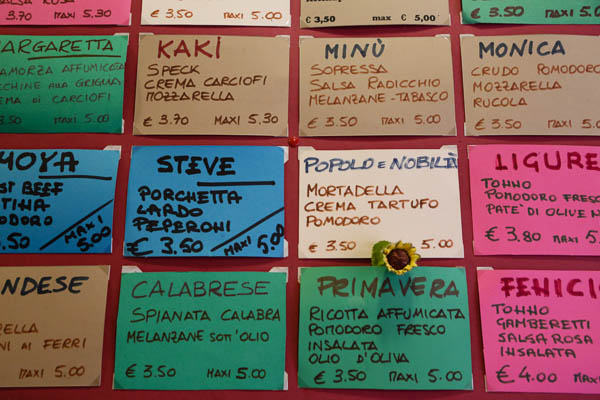 SALSA ROSA
3.70 MAXI 5.30
€ 3.50 MAXI 5.00
€ 3,50 max € 5,00
€ 3.50 MAXI 5.00
MARGARETTA
SCAMORZA AFFUMICATA
ZUCCHINE ALLA GRIGLIA
CREMA DI CARCIOFI
3.50 MAXI 5.00
KAKI
SPECK
CREMA CARCIOFI
MOZZARELLA
€ 3.70 MAXI 5.30
MINÙ
SOPRESSA
SALSA RADICCHIO
MELANZANE-TABASCO
€ 3.50 MAXI 5.00
MONICA
CRUDO POMODORO
MOZZARELLA
RUCOLA
€ 3.50 MAXI 5.00
MOYA
BEEF
POMODORO
3.50 MAXI
5.00
STEVE
PORCHETTA
LARDO
PEPERONI
€ 3.50 MAXI
5.00
POPOLO E NOBILTÀ
MORTADELLA
CREMA TARTUFO
POMODORO
€ 3.50 5.00
LIGURE
TONNO
POMODORO FRESCO
PATE' DI OLIVE
€ 3.80 MAXI
NDESE
AI FERRI
MAXI 5.00
CALABRESE
SPIANATA CALABRA
MELANZANE SOTT'OLIO
€ 3.50 MAXI 5.00
PRIMAVERA
RICOTTA AFFUMICATA
POMODORO FRESCO
INSALATA
OLIO D'OLIVA
€ 3.50 MAXI 5.00
FENICI
TONNO
GAMBERETTI
SALSA ROSA
INSALATA
€ 4.00 MAXI